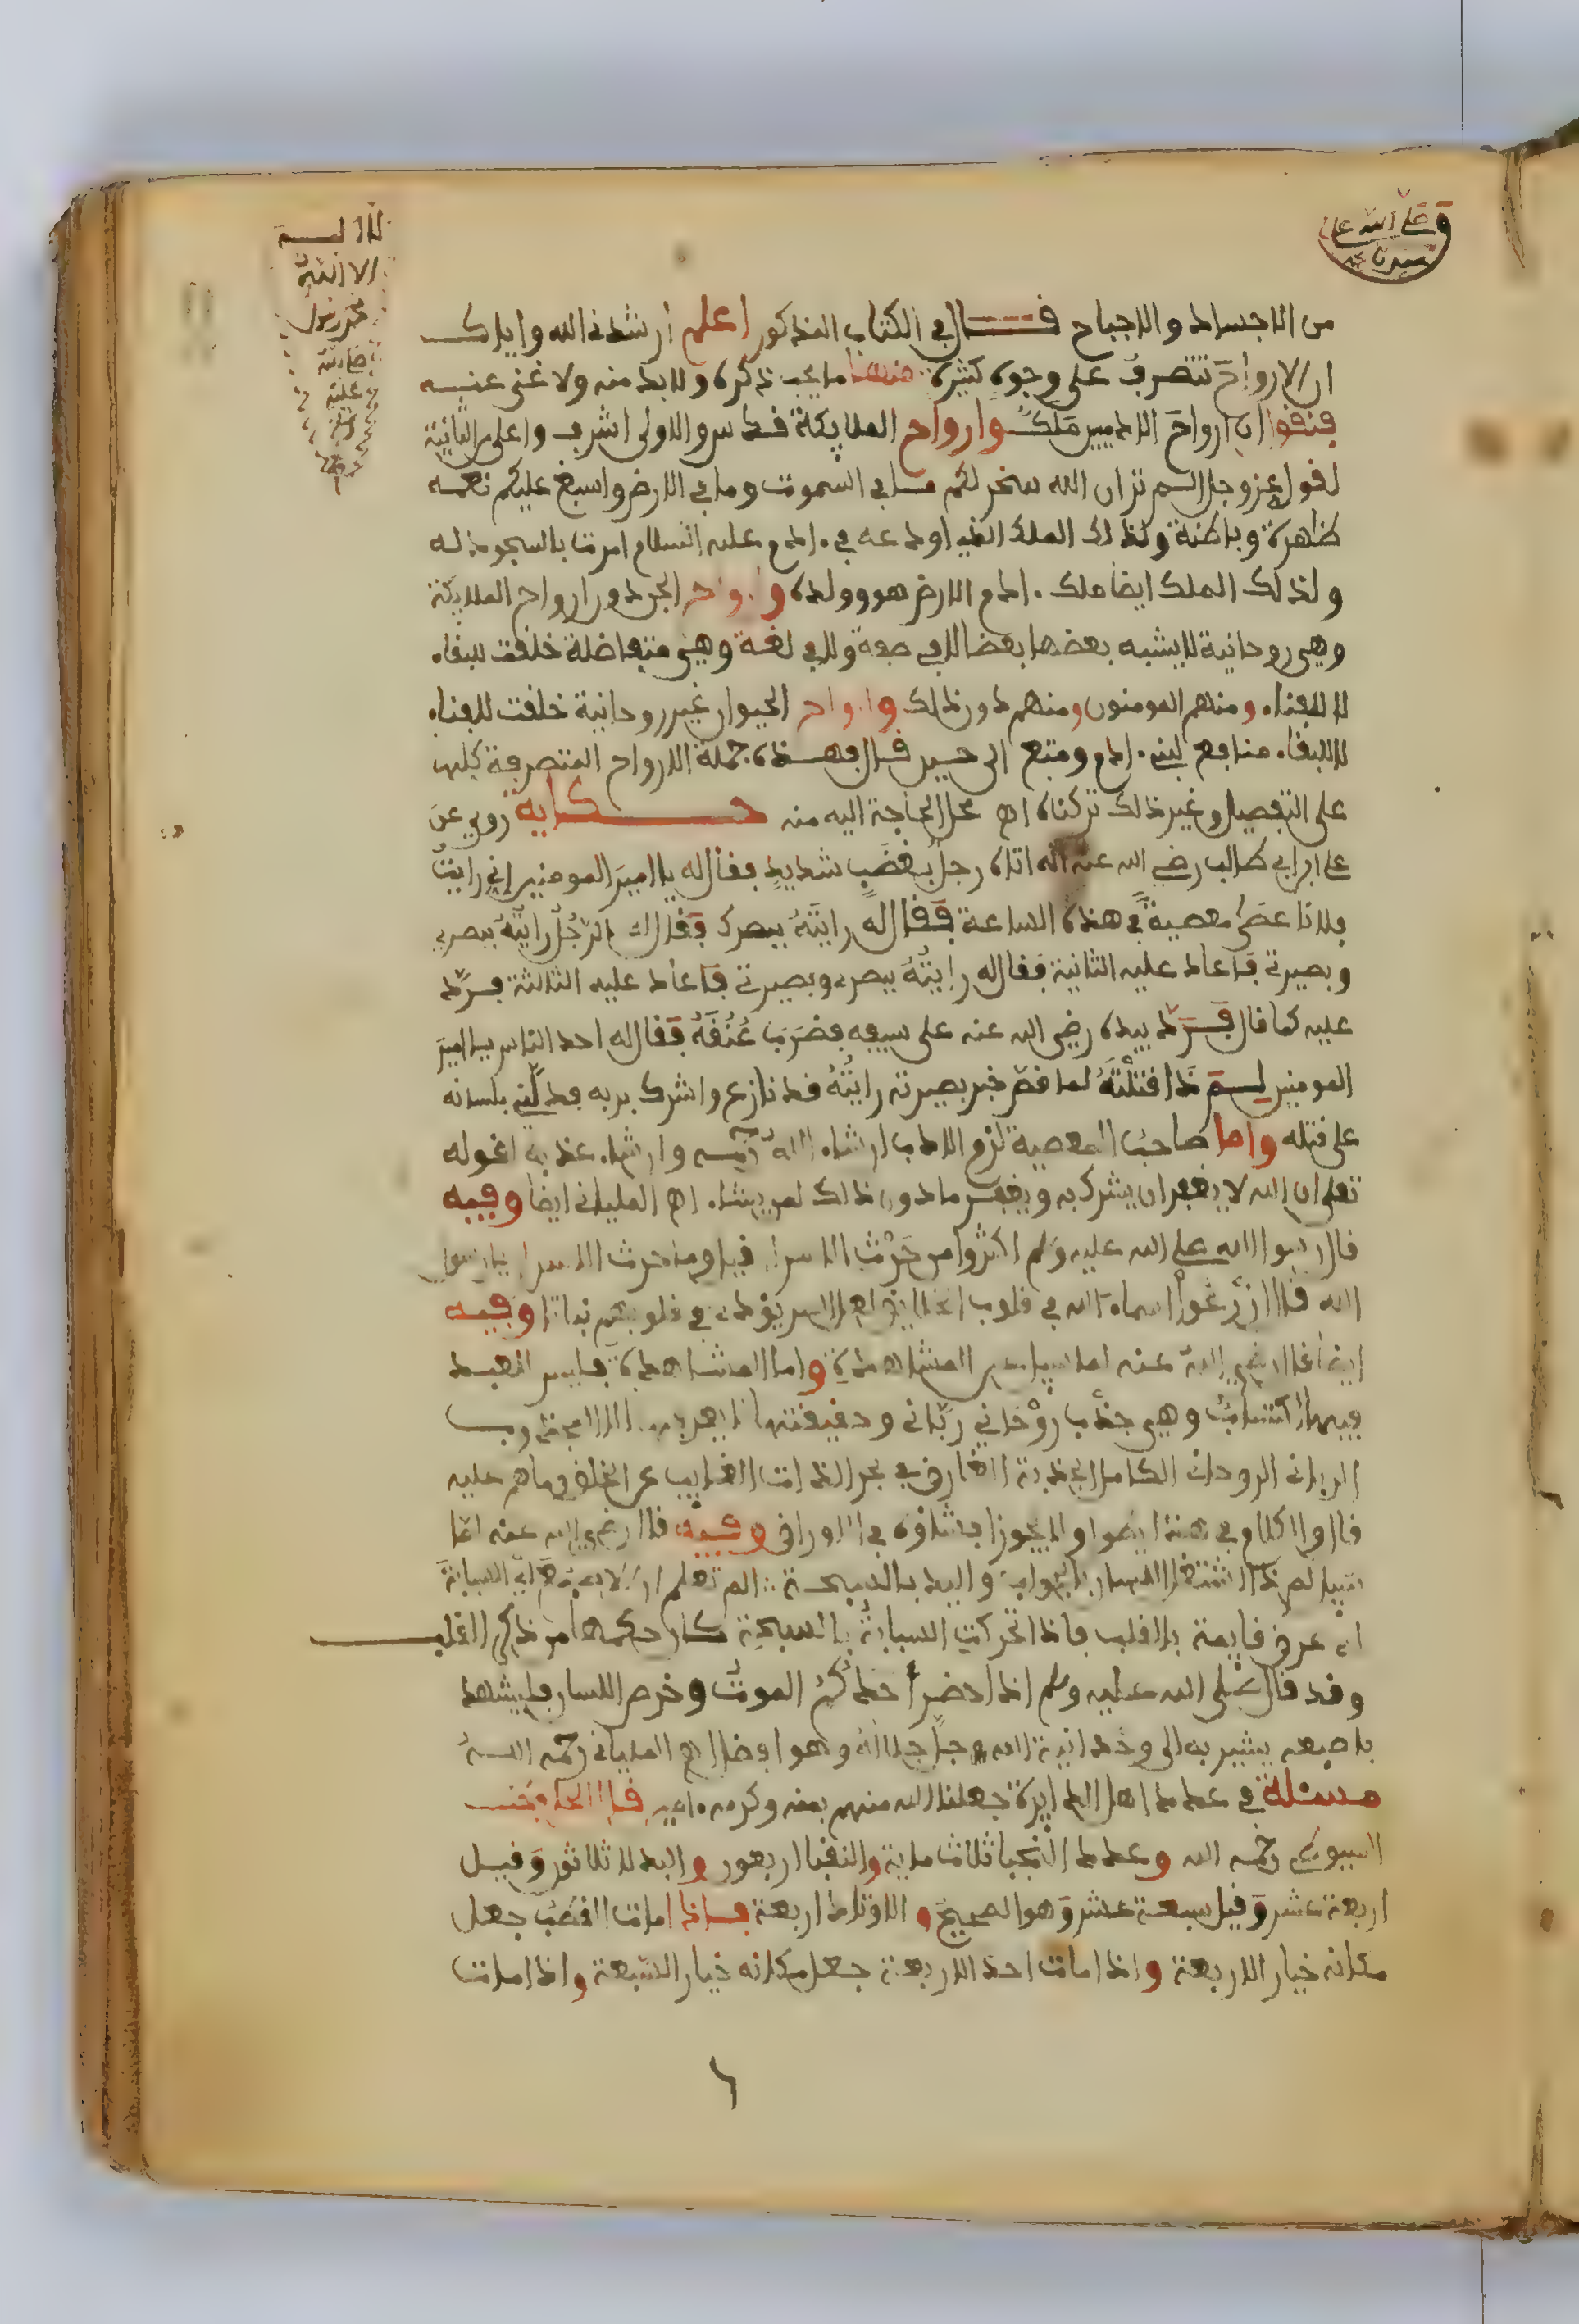 صلى الله على
سيدنا محمد
لا اله
الا الله
محمد رسول
صلى الله
عليه
وسلم
من الاجساد والاجباح قال في الكتاب المذكور اعلم ارشدني الله واياك
ان الارواح تتصرف على وجوه كثيرة منها ما يجب ذكره ولا بد منه ولا غنى عنه
فنقول ان ارواح الادميين ملك وارواح الملايكة قدس والاولى اشرف واعلى الثانية
لقوله عزوجل الم تر ان الله سخر لكم ما في السموت وما في الارض واسبغ عليكم نعمه
ظاهرة وباطنة ولذلك الملك الذي اودعه في ادم عليه السلام امرت بالسجود له
ولذلك الملك ايضا ملك ادم الارض هو وولده وارواح الجن دون ارواح الملايكة
وهي روحانية لا يشبه بعضها بعضا لا في صفة ولا في لغة وهي متفاضلة خلقت للبقاء
لا للفناء ومنهم المومنون ومنهم دون ذلك وارواح الحيوان غير روحانية خلقت للفناء
لا للبقاء منافع لبني ادم ومتع الى حين قال فهذه جملة الارواح المتصرفة كلها
على التفصيل وغير ذلك تركناه اهـ محل الحاجة اليه منه حكاية روي عن
علي ابن ابي طالب رضي الله عنه انه اتاه رجل بغضب شديد فقال له يا امير المومنين اني رايت
فلانا عصى معصية في هذه الساعة فقال له رايته ببصرك فقال له الرجل رايته ببصري
وبصيرتي فاعاد عليه الثانية فقال له رايته ببصري وبصيرتي فاعاد عليه الثالثة فرد
عليه كما قال فرد بيده رضي الله عنه على سيفه فضرب عنقه فقال له احد الناس يا امير
المومنين لم ذا قتلته لما قص خبر بصيرته رايته قد نازع واشرك بربه فدلني بلسانه
على قتله واما صاحب المعصية لزم الادب ان شاء الله رحمه وان شاء عذبه لقوله
تعلى ان الله لا يغفر ان يشرك به ويغفر ما دون ذلك لمن يشاء اهـ المليانى ايضا وفيه
قال رسول الله صلى الله عليه وسلم اكثروا من حرث الاسرار قيل وما حرث الاسرار يا رسول
الله قال ازرعوا اسماء الله في قلوب وفيه
ايضا قال رضي الله عنه المشاهدة واما المشاهدة فليس للعبد
فيها اكتساب وهي جذب روحاني رباني وحقيقتها لا يعرفها الا المجذوب
الرباني الروحاني الكامل الجذبة الغارق في بحر الذات الغايب عن الخلق وما هم عليه
قال والكلام في هذا ولا يجوز افشاؤه في الاوراق وفيه قال رضي الله عنه لما
قيل لم ذا اشتغل اللسان بالجواب واليد بالسبحة الم تعلم ان السبابة
له عرق قايمة بالقلب فاذا تحركت السبابة بالسبحة كان حكمها من ذكر القلب
وقد قال صلى الله عليه وسلم اذا حضر احدكم الموت وخرص اللسان فليشهد
باصبعه يشير به الى وحدانية الله جل جلاله وهو افضل اهـ المليانى رحمه الله
مسئلة في عدد اهل الدايرة جعلنا الله منهم بمنه وكرمه امين قال
السيوطي رحمه الله وعدد النجبا ثلاث ماية والنقبا اربعون والبدلا ثلاثون وقيل
اربعة عشر وقيل سبعة عشر وهو الصحيح والاوتاد اربعة فاذا مات القطب جعل
مكانه خيار الاربعة واذا مات احد الاربعة جعل مكانه خيار السبعة واذا مات